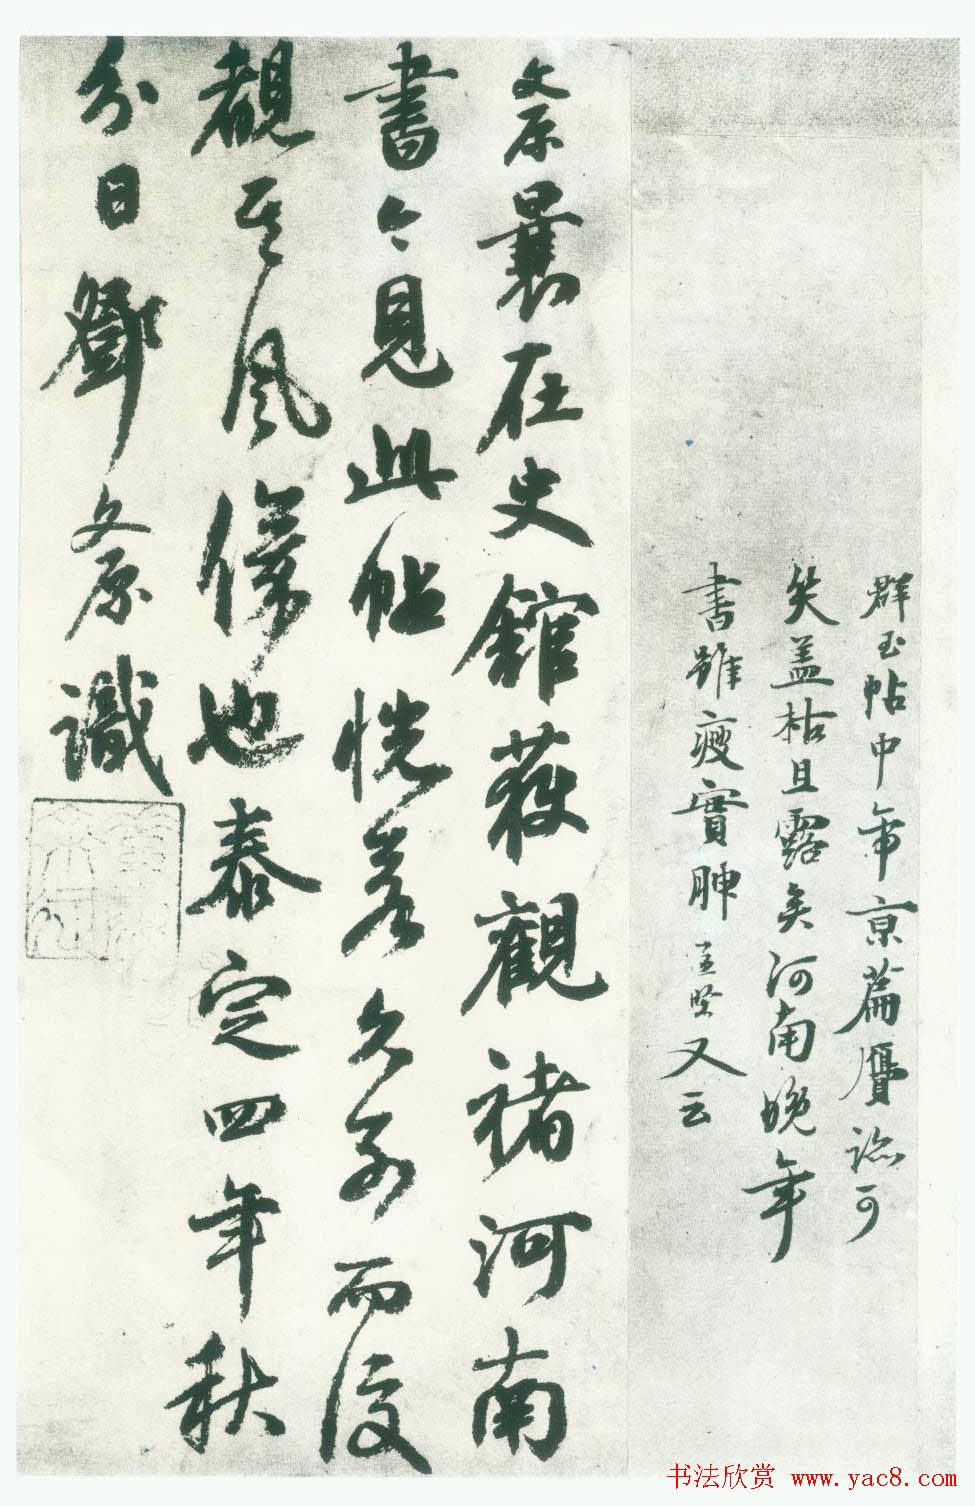 群玉帖中帝京篇贗跡可
笑蓋枯且露矣河南晚年
書雖瘦實腴孟堅又云
文原曩在史館獲觀褚河南
書今見此帖恍若久別而復
覩其風儀也泰定四年秋
分日鄧文原識
书法欣赏 www.yac8.com